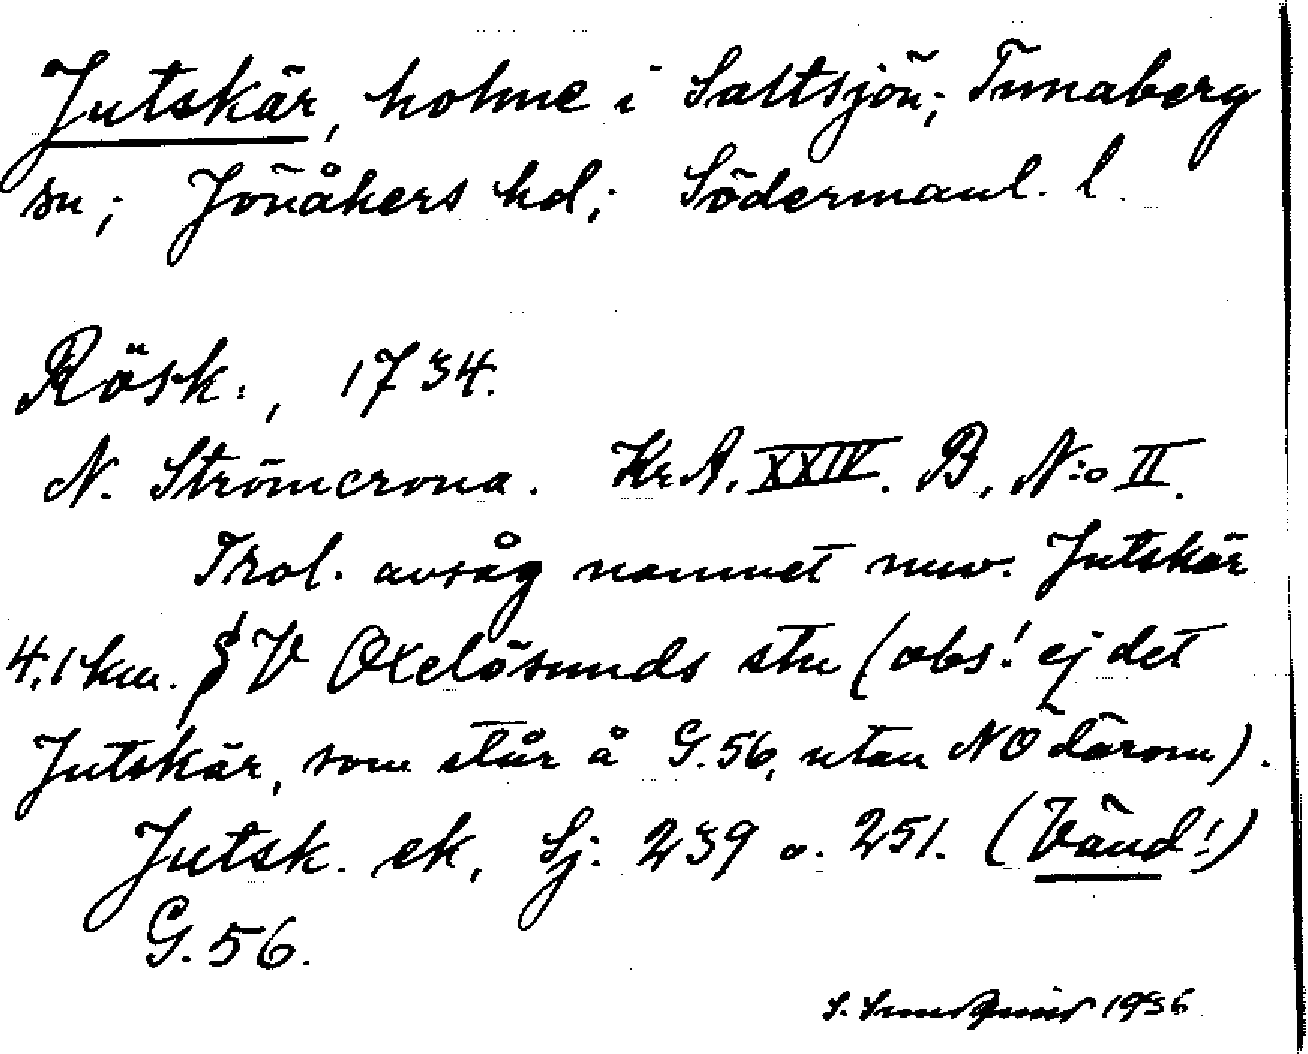 Jutskär, holme i Saltsjön; Tunaberg
sn; Jönåkers hd; Södermanl. l.
Rösk:, 1734.
N. Strömcrona. Kr.A. XXIV. B, N:o II.
Trol. avsåg namnet nuv. Jutskär
4,1 km. V Oxelösunds stn (obs! ej det
Jutskär, som står å G.56, utan NO därom).
Jutsk. ek, Sj. 239 o. 251. (Vänd!)
G.56.
S. Sundqvist 1936